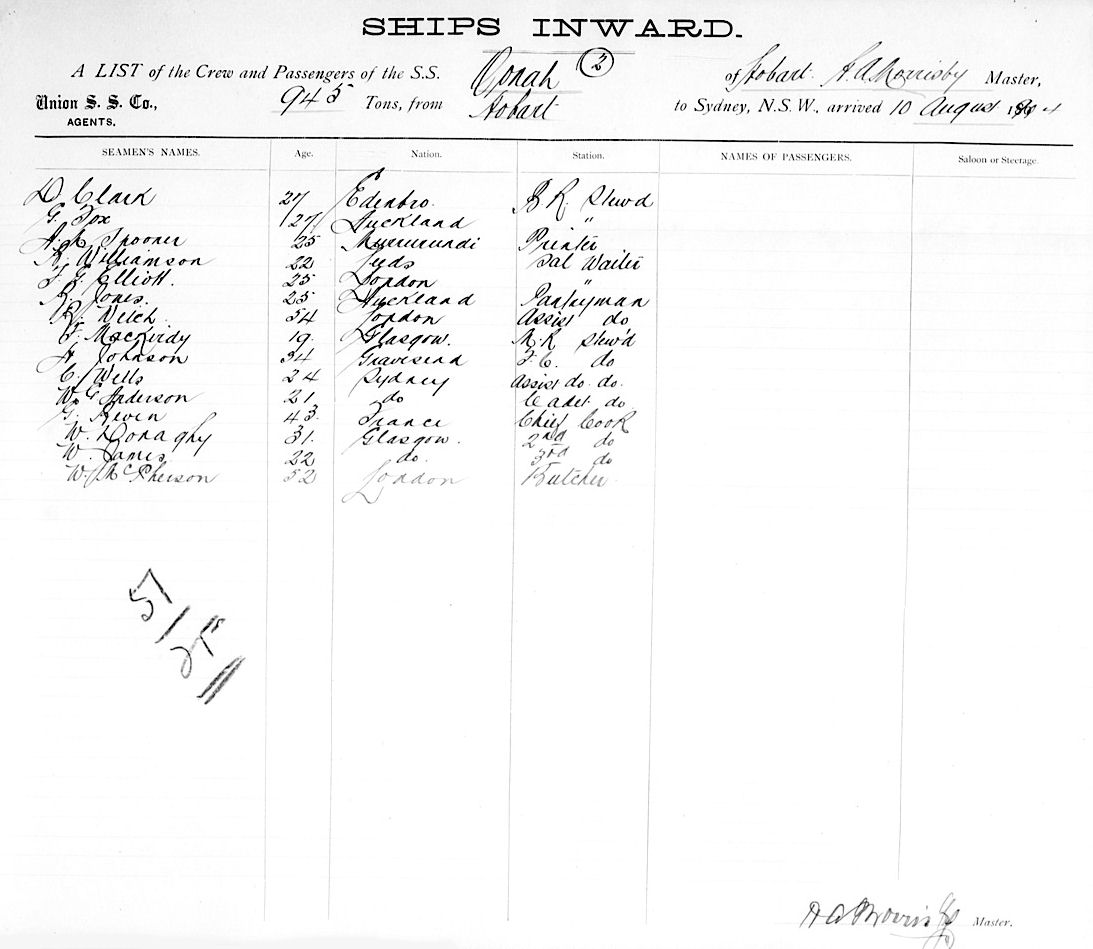 SHIPS INWARD.
A LIST of the Crew and Passengers of the S.S. Oonah 2 of Hobart. H. A. Morrisby Master,
Union S. S. Co., AGENTS. 945 Tons, from Hobart to Sydney, N.S.W., arrived 10 August 1904
SEAMEN'S NAMES. Age. Nation. Station. NAMES OF PASSENGERS. Saloon or Steerage.
D. Clark 27 Edenbro. B. R. Stewd
G. Fox 27 Auckland "
A. Spooner 25 Murrurundi Printer
R. Williamson 22 Leeds Sal Waiter
F. G. Elliott. 25 London "
R. Jones. 25 Auckland Pantryman
R. Veitch 54 London Assist do
F. MacKirdy 19. Glasgow. M. R. Stew'd
A. Johnson 34 Gravesend F. C. do
C. Wells 24 Sydney Assist do. do.
W. G. Anderson 21 do Cadet do
G. 43. France Chief Cook
W. Donaghy 31. Glasgow. 2nd do
W. James. 22 do. 3rd do
W. McPherson 52 London Butcher.
57
H A Morrisby Master.